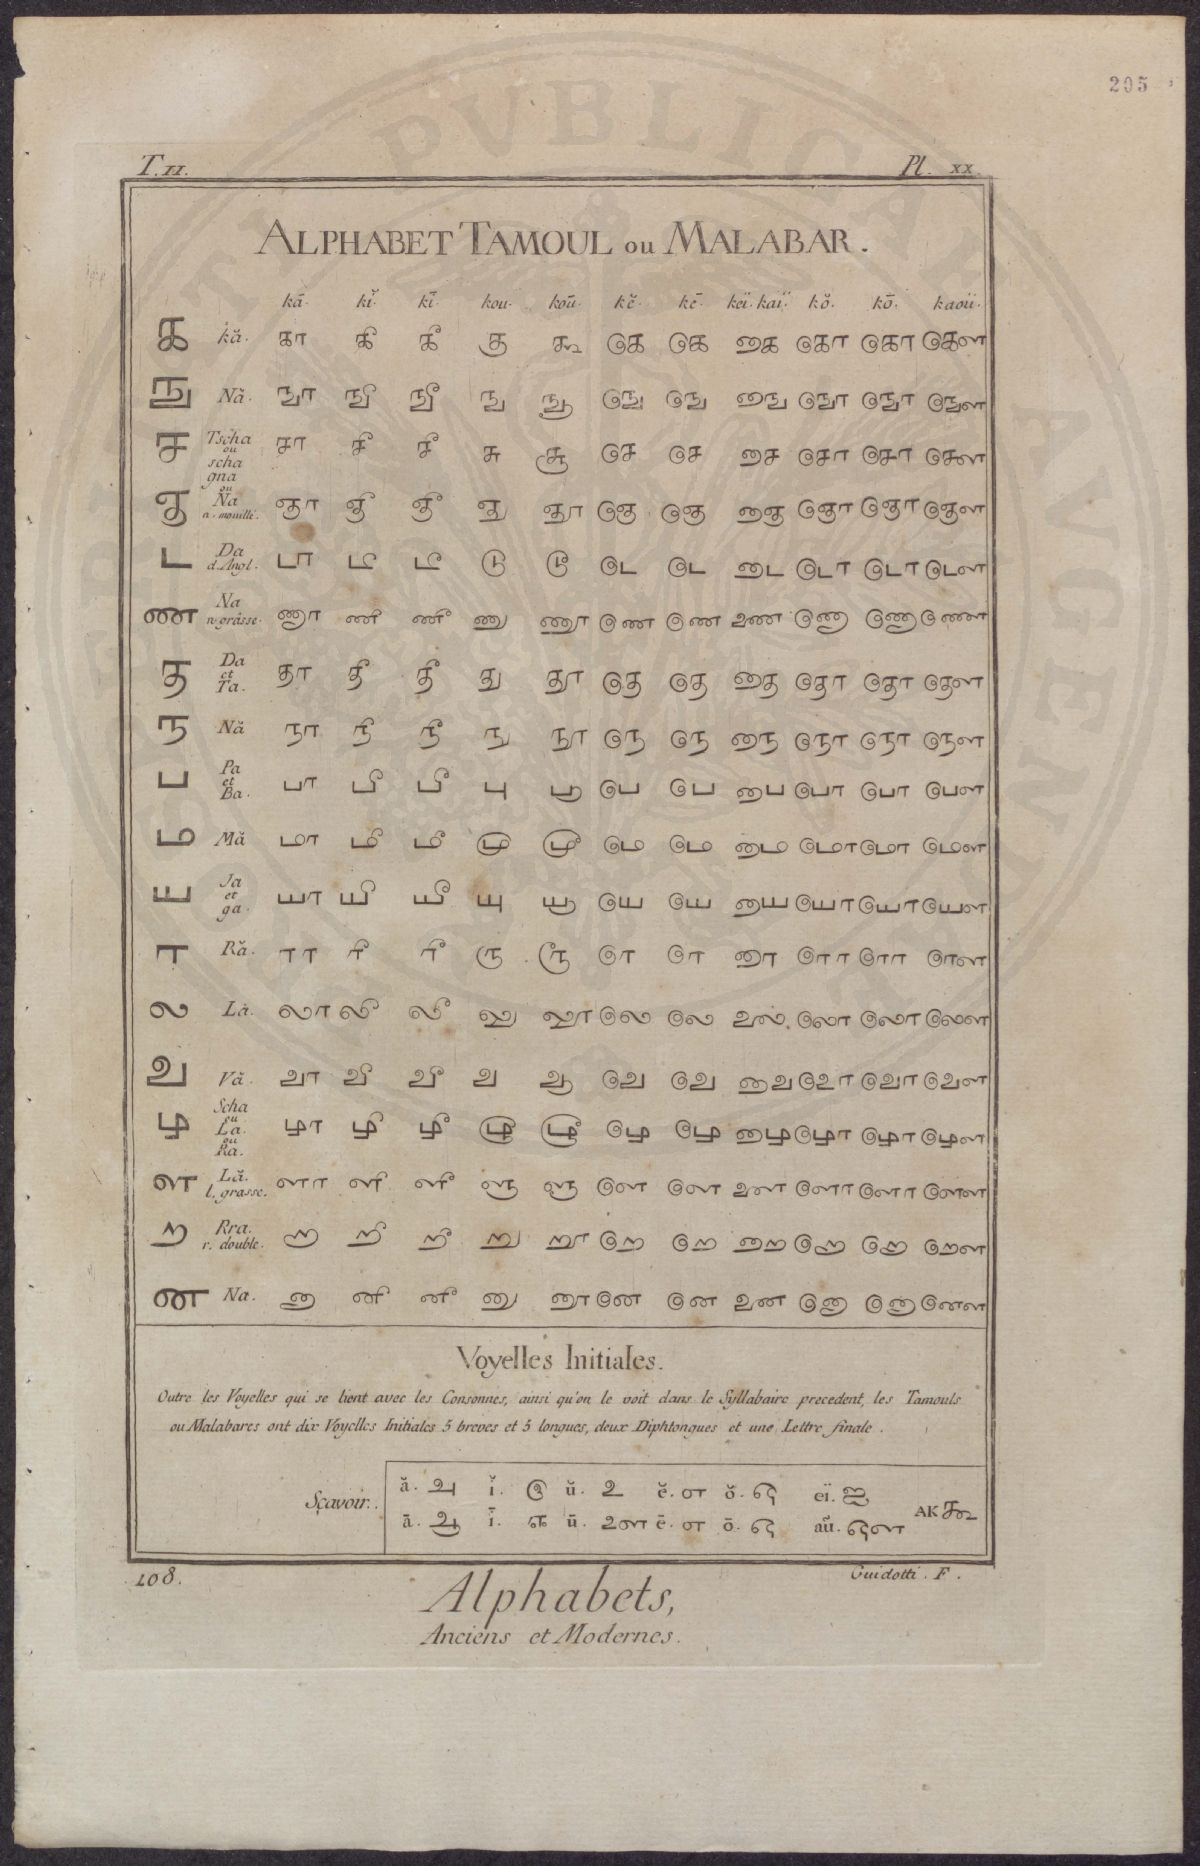 205
T. II.
Pl. XX.
ALPHABET TAMOUL ou MALABAR.
kā. kĭ. kī. kou. koū. kĕ. kē. keï. kaï. kŏ. kō. kaoü.
க kă. கா கி கீ கு கூ கெ கெ கை கொ கொ கௌ
ங Nă. ஙா ஙி ஙீ ஙு ஙூ ஙெ ஙெ ஙை ஙொ ஙொ ஙௌ
ச Tscha ou scha சா சி சீ சு சூ செ செ சை சொ சொ சௌ
ஞ gna ou Na n. mouillé. ஞா ஞி ஞீ ஞு ஞூ ஞெ ஞெ ஞை ஞொ ஞொ ஞௌ
ட Da d. Angl. டா டி டீ டு டூ டெ டெ டை டொ டொ டௌ
ண Na n grasse. ணா ணி ணீ ணு ணூ ணெ ணெ ணை ணொ ணொ ணௌ
த Da et Ta. தா தி தீ து தூ தெ தெ தை தொ தொ தௌ
ந Nă நா நி நீ நு நூ நெ நெ நை நொ நொ நௌ
ப Pa et Ba. பா பி பீ பு பூ பெ பெ பை பொ பொ பௌ
ம Mă மா மி மீ மு மூ மெ மெ மை மொ மொ மௌ
ய Ja et ga. யா யி யீ யு யூ யெ யெ யை யொ யொ யௌ
ர Ră. ரா ரி ரீ ரு ரூ ரெ ரெ ரை ரொ ரொ ரௌ
ல Lă. லா லி லீ லு லூ லெ லெ லை லொ லொ லௌ
வ Vă. வா வி வீ வு வூ வெ வெ வை வொ வொ வௌ
ழ Scha ou La. ou Ra. ழா ழி ழீ ழு ழூ ழெ ழெ ழை ழொ ழொ ழௌ
ள Lă. l. grasse. ளா ளி ளீ ளு ளூ ளெ ளெ ளை ளொ ளொ ளௌ
ற Rra. r. double. றா றி றீ று றூ றெ றெ றை றொ றொ றௌ
ன Na. னா னி னீ னு னூ னெ னெ னை னொ னொ னௌ
Voyelles Initiales.
Outre les Voyelles qui se lient avec les Consonnes, ainsi qu'on le voit dans le Syllabaire precedent, les Tamouls
ou Malabares ont dix Voyelles Initiales 5 breves et 5 longues, deux Diphtongues et une Lettre finale.
Sçavoir.
ă. அ ĭ. இ ŭ. உ ĕ. எ ŏ. ஒ eï. ஐ
ā. ஆ ī. ஈ ū. ஊ ē. எ ō. ஒ aü. ஔ AK ஃ
108.
Guidotti. F.
Alphabets,
Anciens et Modernes.